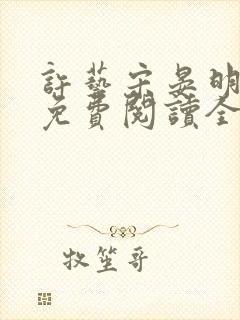 許藝宋晏明
免費閱讀全
牧笙哥